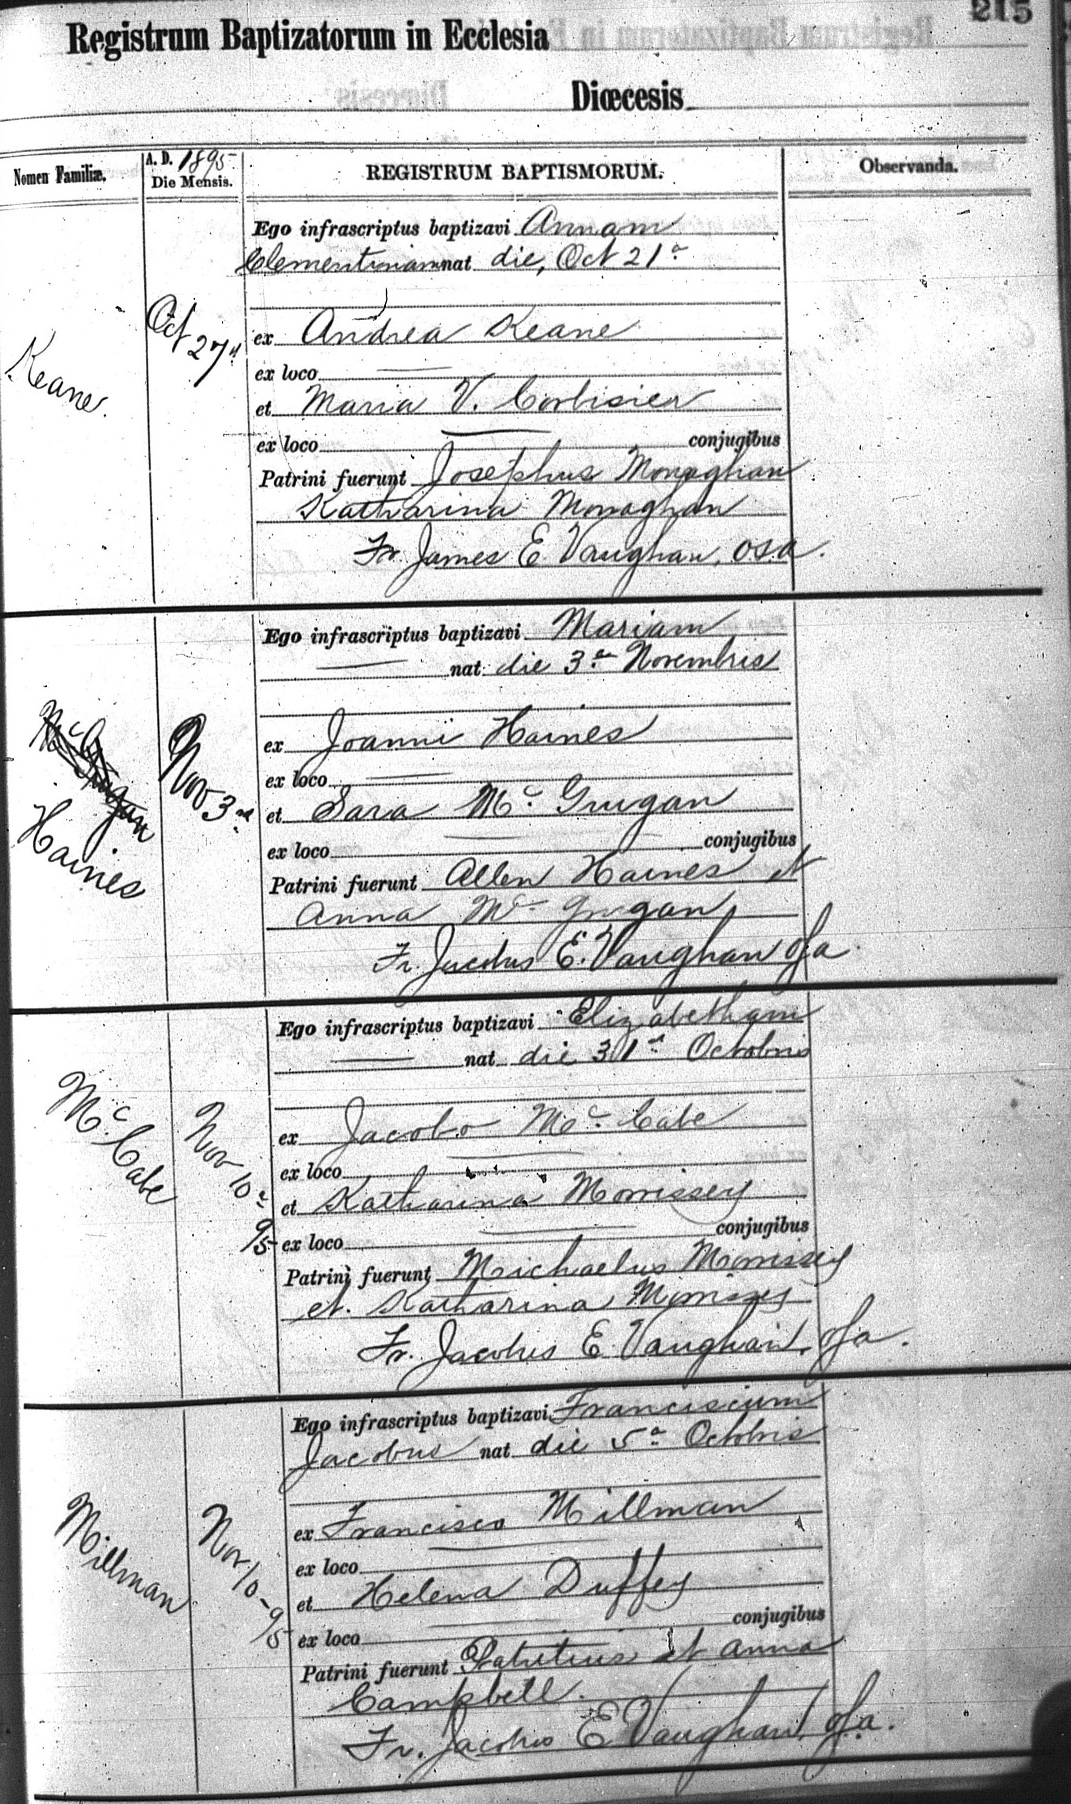 215
Registrum Baptizatorum in Ecclesia
Diœcesis
Nomen Familiæ.
A. D. 1895
Die Mensis.
REGISTRUM BAPTISMORUM.
Observanda.
Keane.
Oct 27a
Ego infrascriptus baptizavi Annam
Clementinam nat die, Oct 21a
ex Andrea Keane
ex loco
et Maria V. Corbisier
ex loco conjugibus
Patrini fuerunt Josephus Monaghan
Katharina Monaghan
Fr. James E. Vaughan, O.S.A.
McGrugan
Haines
Nov 3a
Ego infrascriptus baptizavi Mariam
nat die 3a Novembris
ex Joanni Haines
ex loco
et Sara Mc Grugan
ex loco conjugibus
Patrini fuerunt Allen Haines et
Anna Mc Grugan
Fr. Jacobus E. Vaughan osa
McCabe
Nov 10a
95
Ego infrascriptus baptizavi Elizabetham
nat die 31a Octobris
ex Jacobo Mc Cabe
ex loco
et Katharina Morrissey
ex loco conjugibus
Patrini fuerunt Michaelus Morrissey
et Katharina Morrissey
Fr. Jacobus E. Vaughan, osa.
Millman
Nov 10-
95
Ego infrascriptus baptizavi Franciscum
Jacobus nat die 5a Octobris
ex Francisco Millman
ex loco
et Helena Duffey
ex loco conjugibus
Patrini fuerunt Patritius et Anna
Campbell.
Fr. Jacobus E. Vaughan, osa.